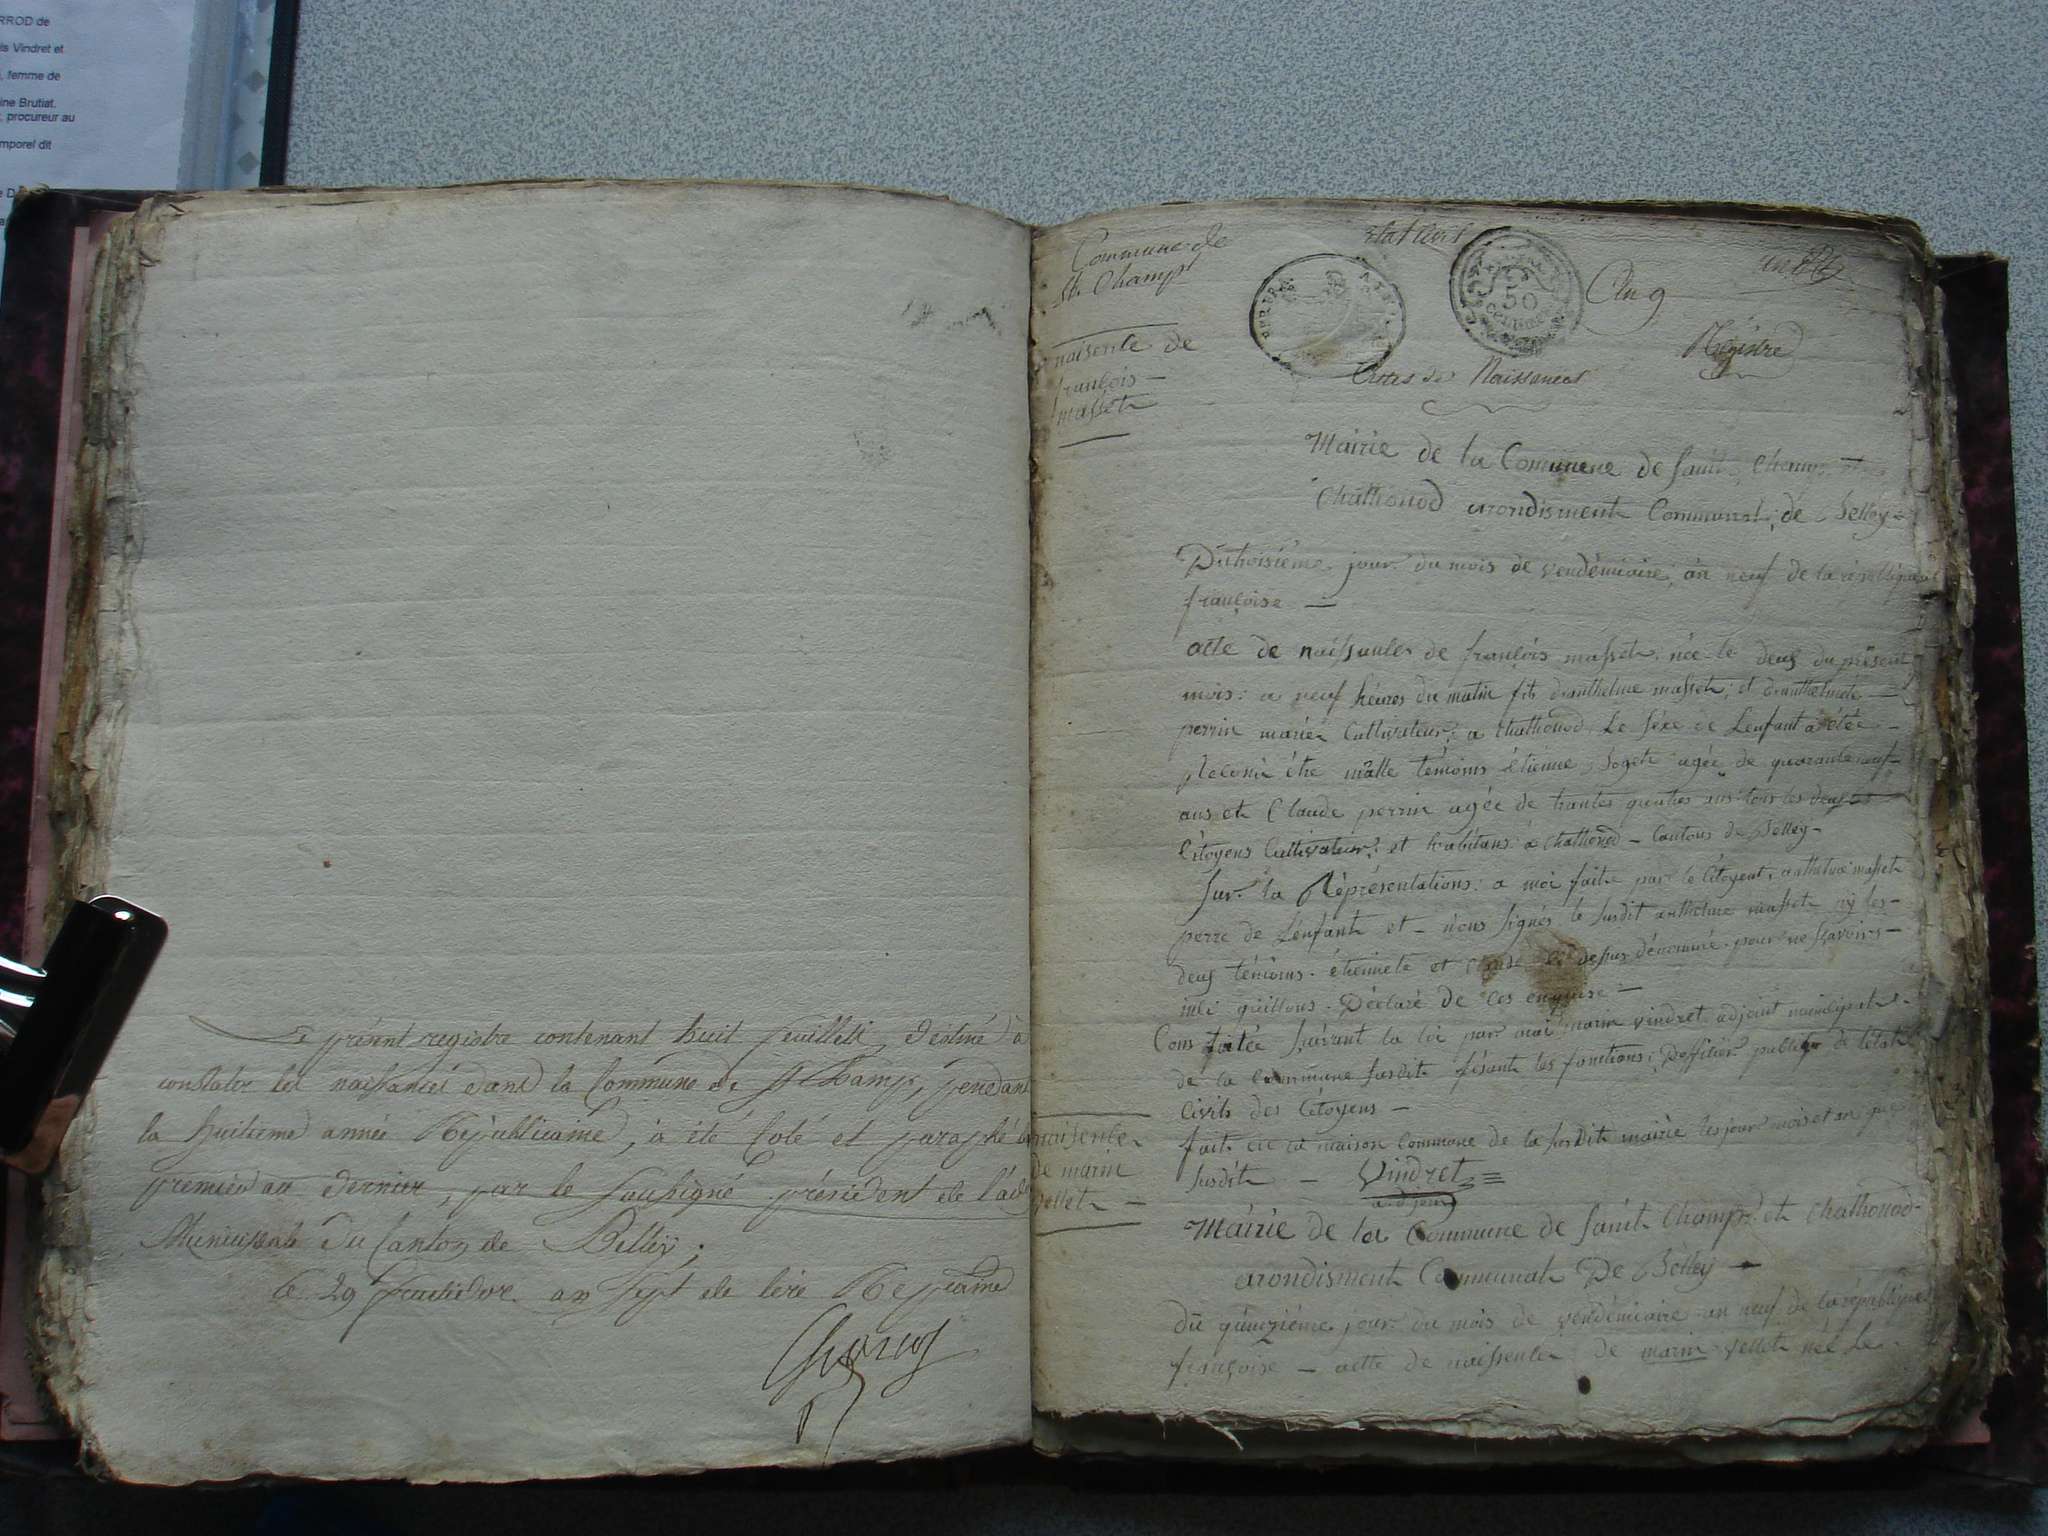 RROD de
is Vindret et
, femme de
ine Brutiat.
, procureur au
mporel dit
Le présent registre contenant huit feuillets, destiné à
constater les naissances dans la Commune de St Champ, pendant
la huitieme année Républicaine, a été Coté et paraphé
premier au dernier, par le Soussigné président de l'ad
Municipale du Canton de Belley;
le 29 fructidor an Sept de l'ère Republicaine
Commune de
St Champ
Etat Civil
50
CENTIMES
an 9
Régistre
Actes de Naissances
naisente de
françois
masset
Mairie de la Commune de Saint Champ et
Chathonod arondisment Communal de Belley
Du troisième jour du mois de vendémiaire an neuf de la république
françoise —
acte de naissantes de françois masset née le deus du présent
mois: a neuf héures du matin fils d'anthelme masset; et d'anthelmete —
perrin mariés Cultivateur; a Chathonod Le séxe de Lenfant a étée —
Reconu étre malle temoins étienne Soget agée de quarante neuf
ans et Claude perrin agée de trantes quatres ans tous les deus
Citoyens Cultivateur; et habitans a Chathonod — Cantons de Belley —
Sur la Réprésentations: a moi faite par le Citoyent anthelme masset
perre de Lenfant et — nous Signés le Susdit anthelme masset ny les —
deus témoins étienne et Claude dessus dénommé pour ne Scavoirs —
de ces enquise —
Constatée Suivant la loi par moi marin vindret adjoint municipale
de la Commune Susdit fésant les fonctions; D'officier publique de létat
Civils des Citoyens —
fait en la maison Commune de la Susdite mairie les jour mois et an que
Susdit — Vindret
adjoint
naisente
de marin
vellet —
Mairie de la Commune de Saint Champ et Chathonod
arondisment Communal De Belley —
du quinziéme jour du mois de vendémiaire an neuf de la république
françoise — acte de naissente de marin vellet née le